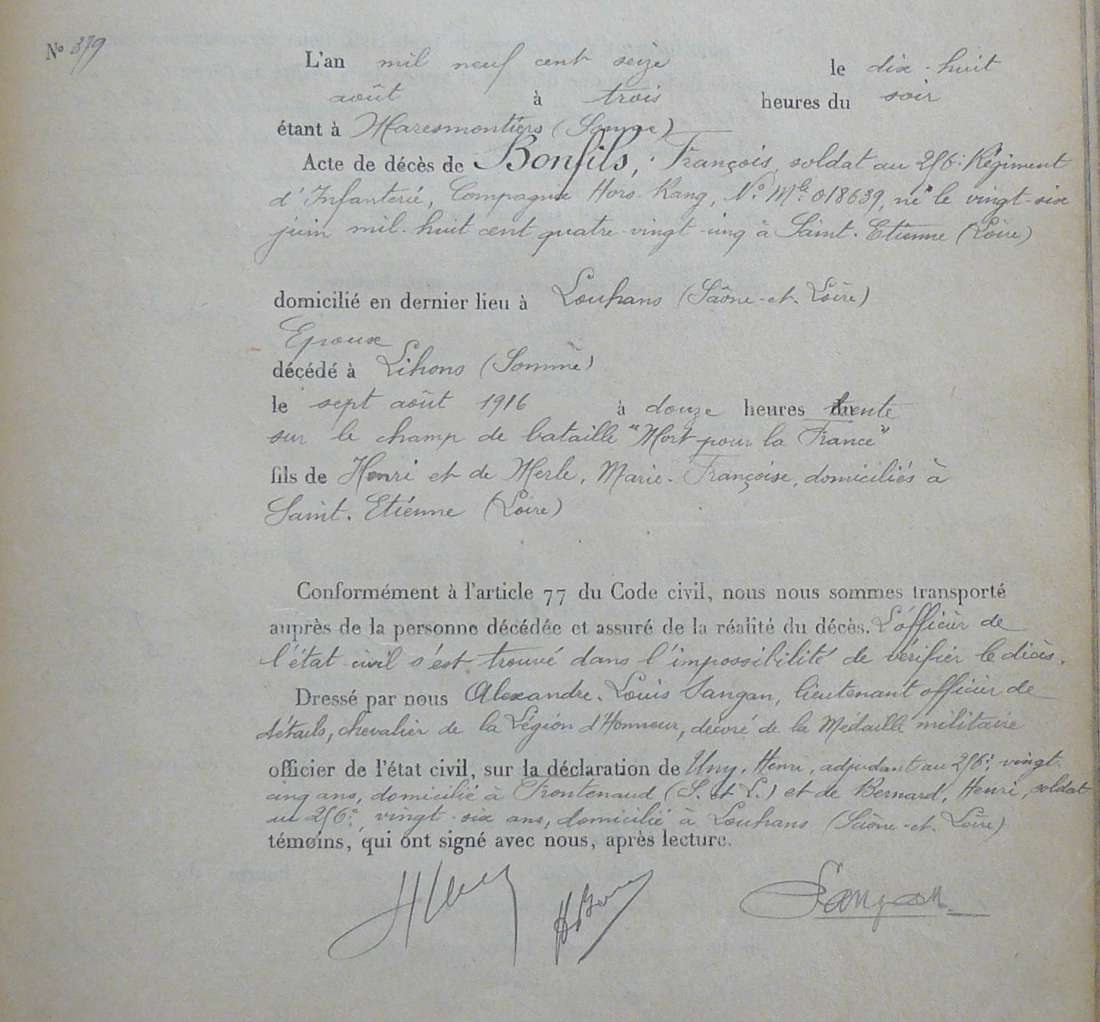 N° 379
L'an mil neuf cent seize le dix-huit
août à trois heures du soir
étant à Maresmontiers (Somme)
Acte de décès de Bonfils, François, soldat au 256e Régiment
d'Infanterie, Compagnie Hors-Rang, N° Mle 018639, né le vingt-six
juin mil-huit cent quatre-vingt-cinq à Saint-Etienne (Loire)
domicilié en dernier lieu à Louhans (Saône-et-Loire)
Epoux
décédé à Lihons (Somme)
le sept août 1916 à douze heures trente
sur le champ de bataille "Mort pour la France"
fils de Henri et de Merle, Marie-Françoise, domiciliés à
Saint-Etienne (Loire)
Conformément à l'article 77 du Code civil, nous nous sommes transporté
auprès de la personne décédée et assuré de la réalité du décès. L'officier de
l'état-civil s'est trouvé dans l'impossibilité de vérifier le décès.
Dressé par nous Alexandre-Louis Sangan, lieutenant officier de
détails, chevalier de la Légion d'Honneur, décoré de la Médaille militaire
officier de l'état civil, sur la déclaration de Uny, Henri, adjudant au 256e, vingt-
cinq ans, domicilié à Frontenaud (S. et L.) et de Bernard, Henri, soldat
au 256e, vingt-six ans, domicilié à Louhans (Saône-et-Loire)
témoins, qui ont signé avec nous, après lecture.
Sangan